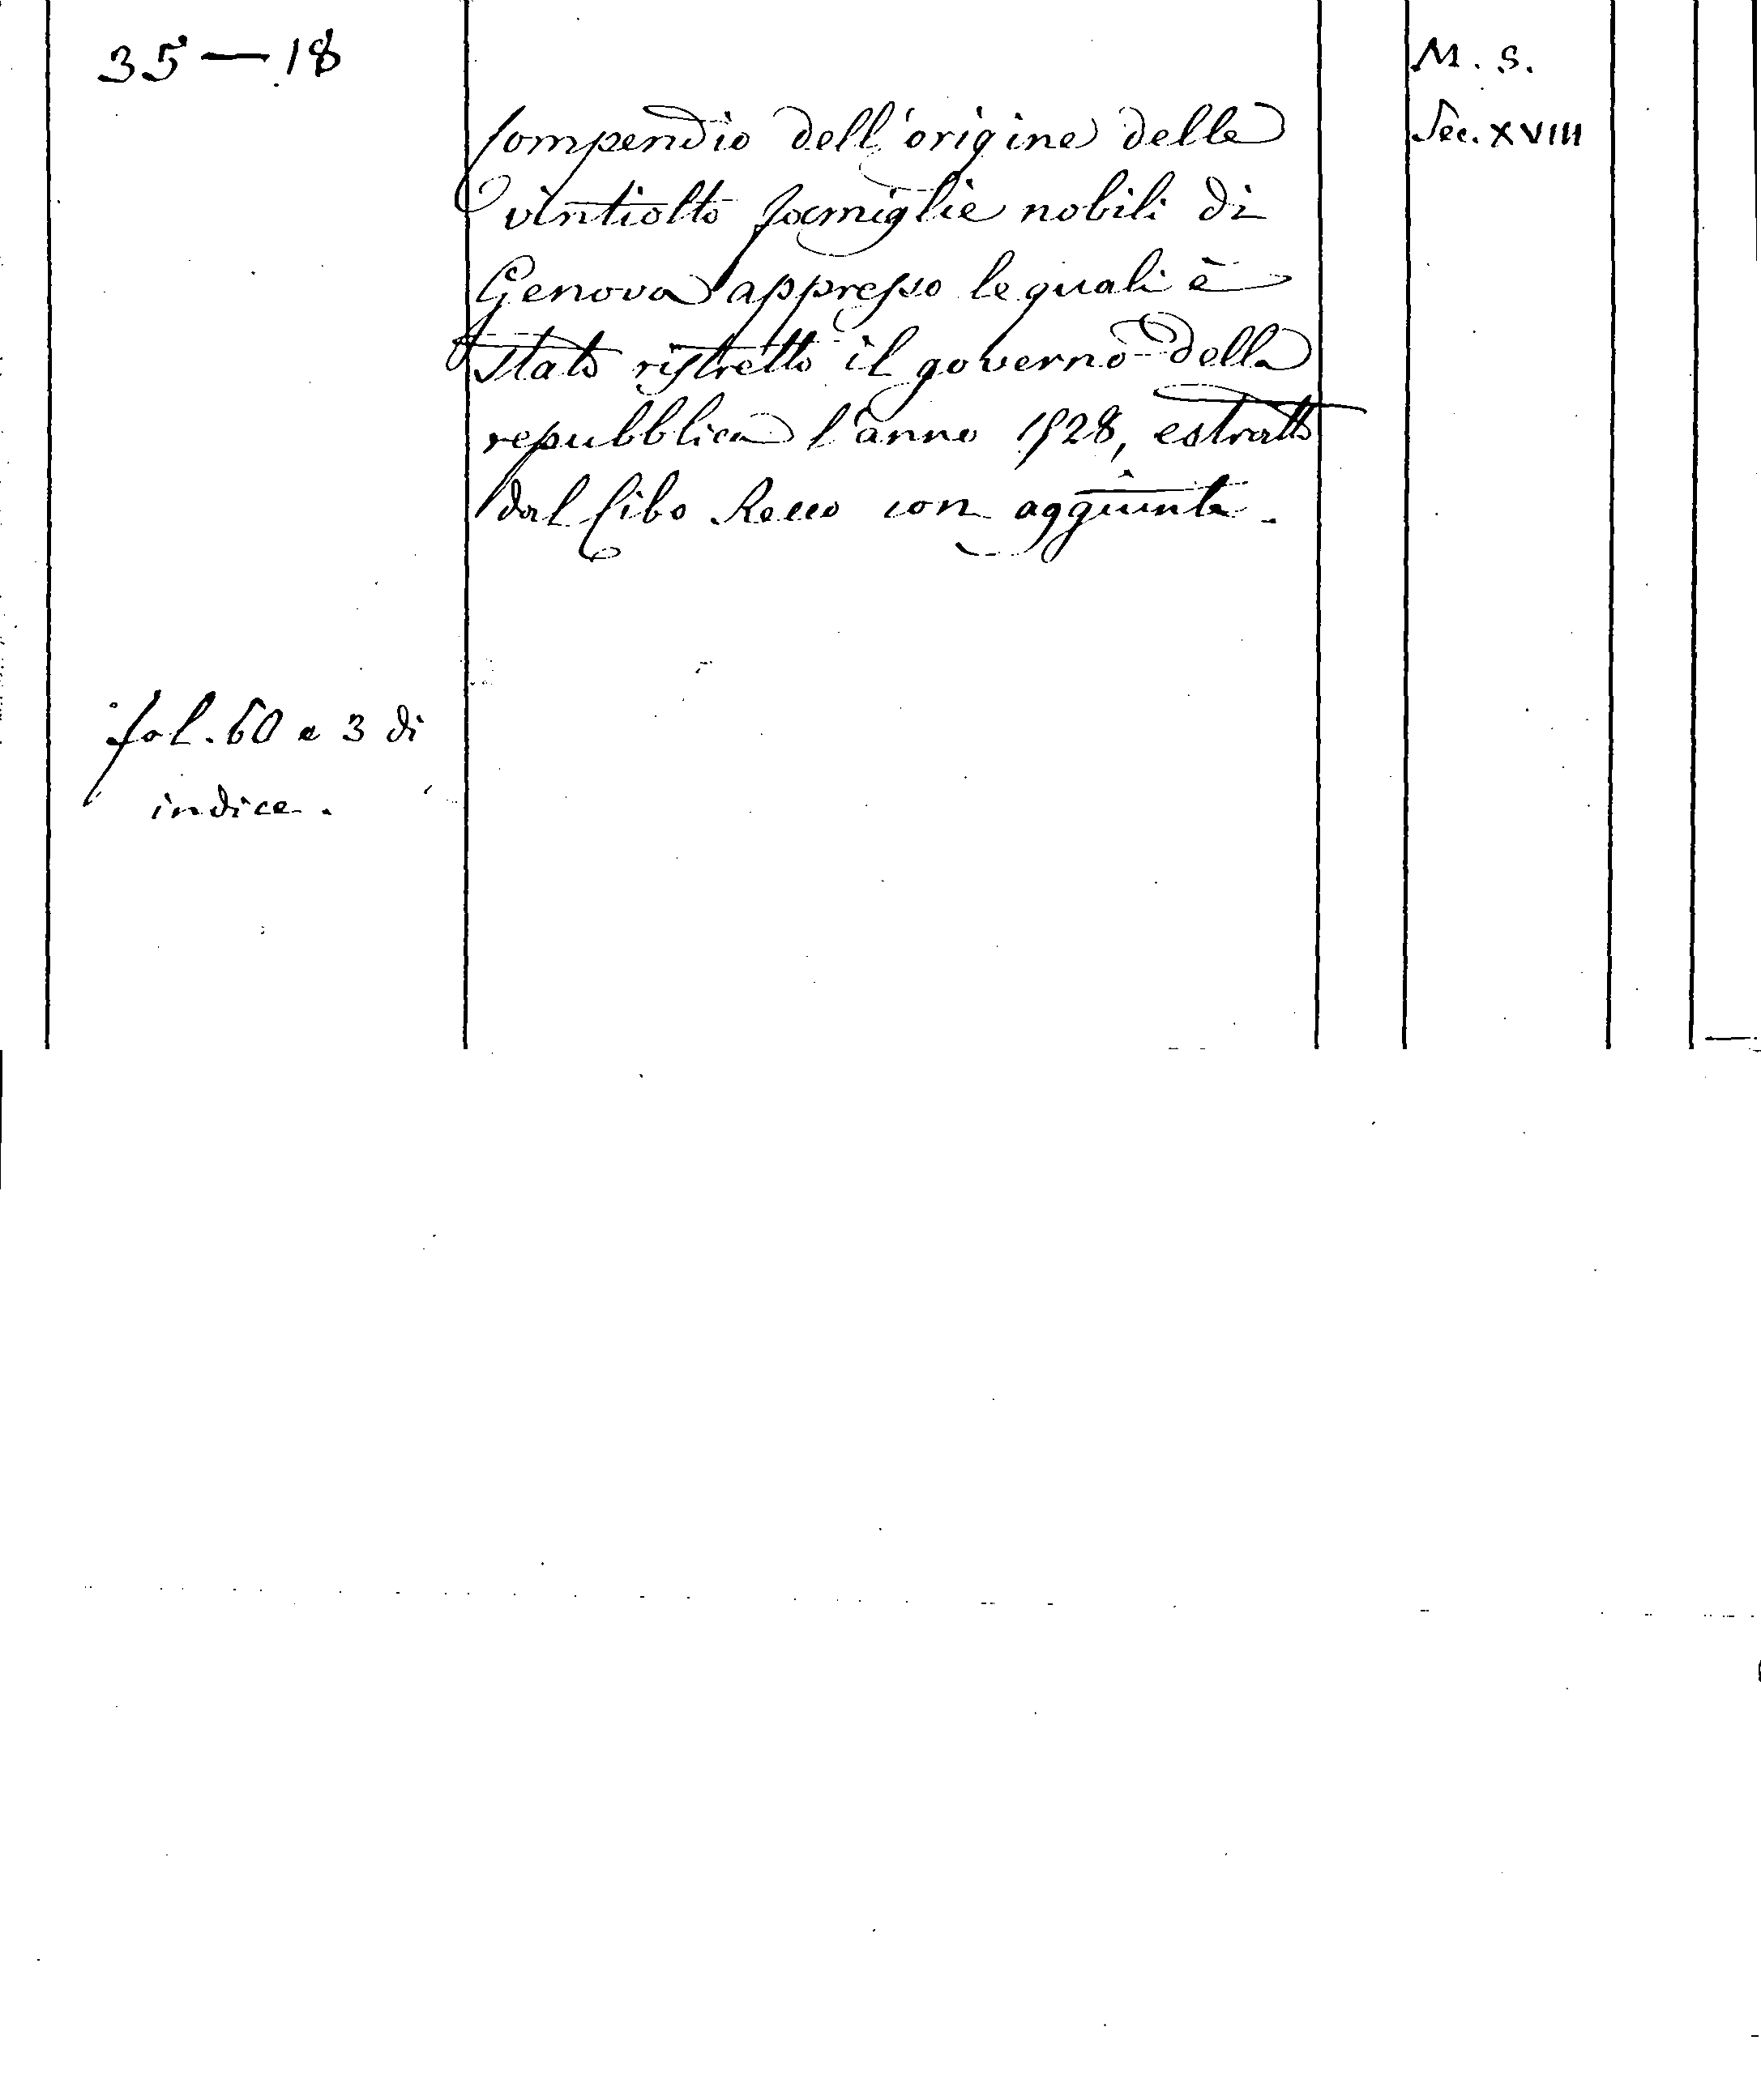 35 — 18
M. S.
Sec. XVIII
Compendio dell'origine delle
vintiotto famiglie nobili di
Genova appresso le quali è
stato ristretto il governo della
repubblica l'anno 1528, estratto
dal Cibo Recco con aggiunte.
fol. 60 e 3 di
indice.